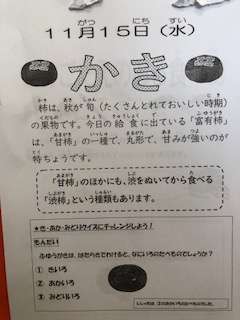 11月15日（水）
かき
柿は、秋が旬（たくさんとれておいしい時期）
の果物です。今日の給食に出ている「富有柿」
は、「甘柿」の一種で、丸形で、甘みが強いのが
特ちょうです。
「甘柿」のほかにも、渋をぬいてから食べる
「渋柿」という種類もあります。
★き・あか・みどりクイズにチャレンジしよう！
もんだい
ふゆうがきは、はたらきでわけると、なにいろのたべものでしょうか？
① きいろ
② あかいろ
③ みどりいろ